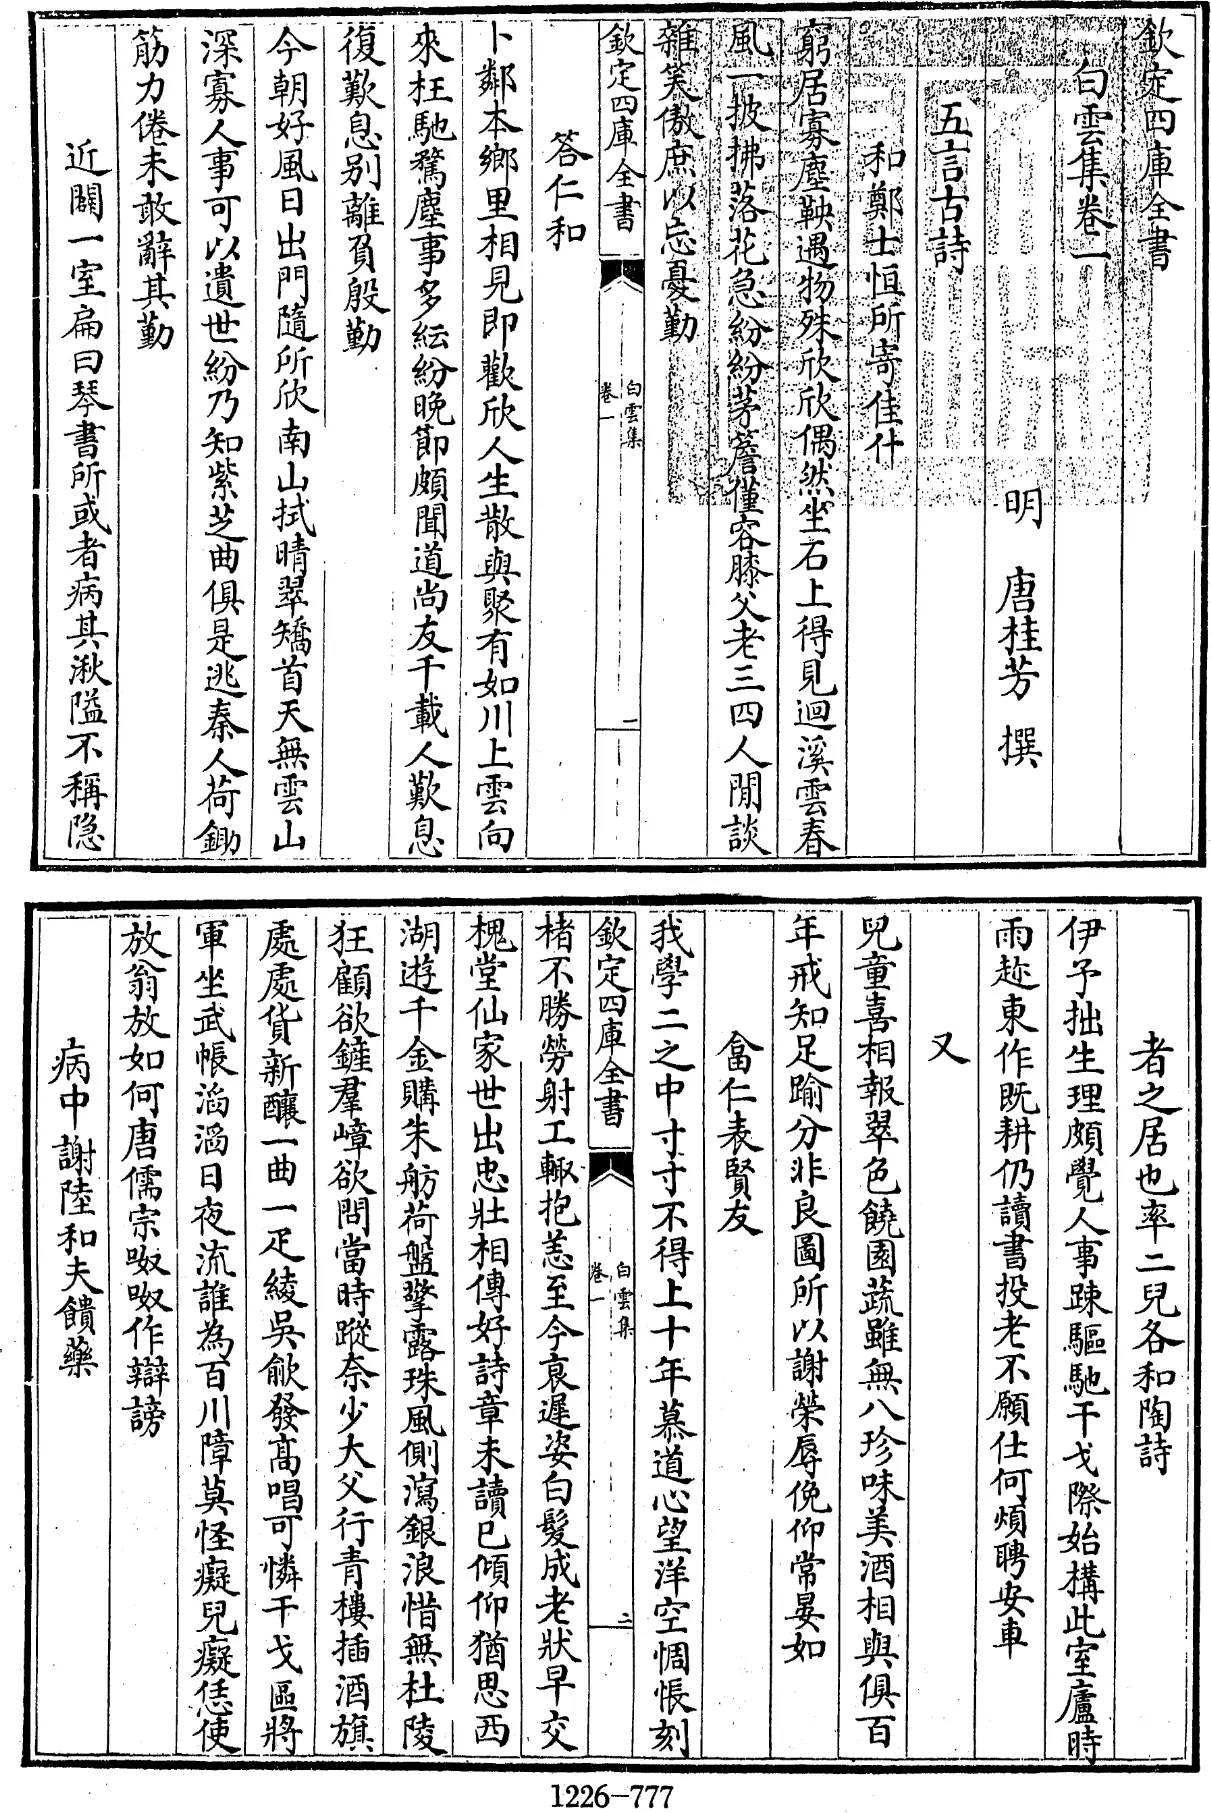 欽定四庫全書
白雲集卷一
明 唐桂芳 撰
五言古詩
和鄭士恒所寄佳什
窮居寡塵鞅遇物殊欣欣偶然坐石上得見迴溪雲春
風一披拂落花急紛紛茅簷僅容膝父老三四人閒談
雜笑傲庶以忘憂勤
欽定四庫全書
白雲集
卷一
一
答仁和
卜鄰本鄉里相見即歡欣人生散與聚有如川上雲向
來枉馳騖塵事多紜紛晚節頗聞道尚友千載人歎息
復歎息別離負殷勤
今朝好風日出門隨所欣南山拭晴翠矯首天無雲山
深寡人事可以遺世紛乃知紫芝曲俱是逃秦人荷鋤
筋力倦未敢辭其勤
近闢一室扁曰琴書所或者病其湫隘不稱隐
者之居也率二兒各和陶詩
伊予拙生理頗覺人事踈驅馳干戈際始搆此室廬時
雨趂東作既耕仍讀書投老不願仕何煩聘安車
又
兒童喜相報翠色饒園蔬雖無八珍味美酒相與俱百
年戒知足踰分非良圖所以謝榮辱俛仰常晏如
畣仁表賢友
我學二之中寸寸不得上十年慕道心望洋空惆悵刻
欽定四庫全書
白雲集
卷一
二
楮不勝勞射工輙抱恙至今衰遲姿白髮成老狀早交
槐堂仙家世出忠壯相傳好詩章未讀已傾仰猶思西
湖遊千金購朱舫荷盤擎露珠風側瀉銀浪惜無杜陵
狂顧欲鏟羣嶂欲問當時蹤奈少大父行青樓插酒旗
處處貨新釀一曲一疋綾吳歈發高唱可憐干戈區將
軍坐武帳滔滔日夜流誰為百川障莫怪癡兒癡恁使
放翁放如何唐儒宗呶呶作辯謗
病中謝陸和夫饋藥
1226-777